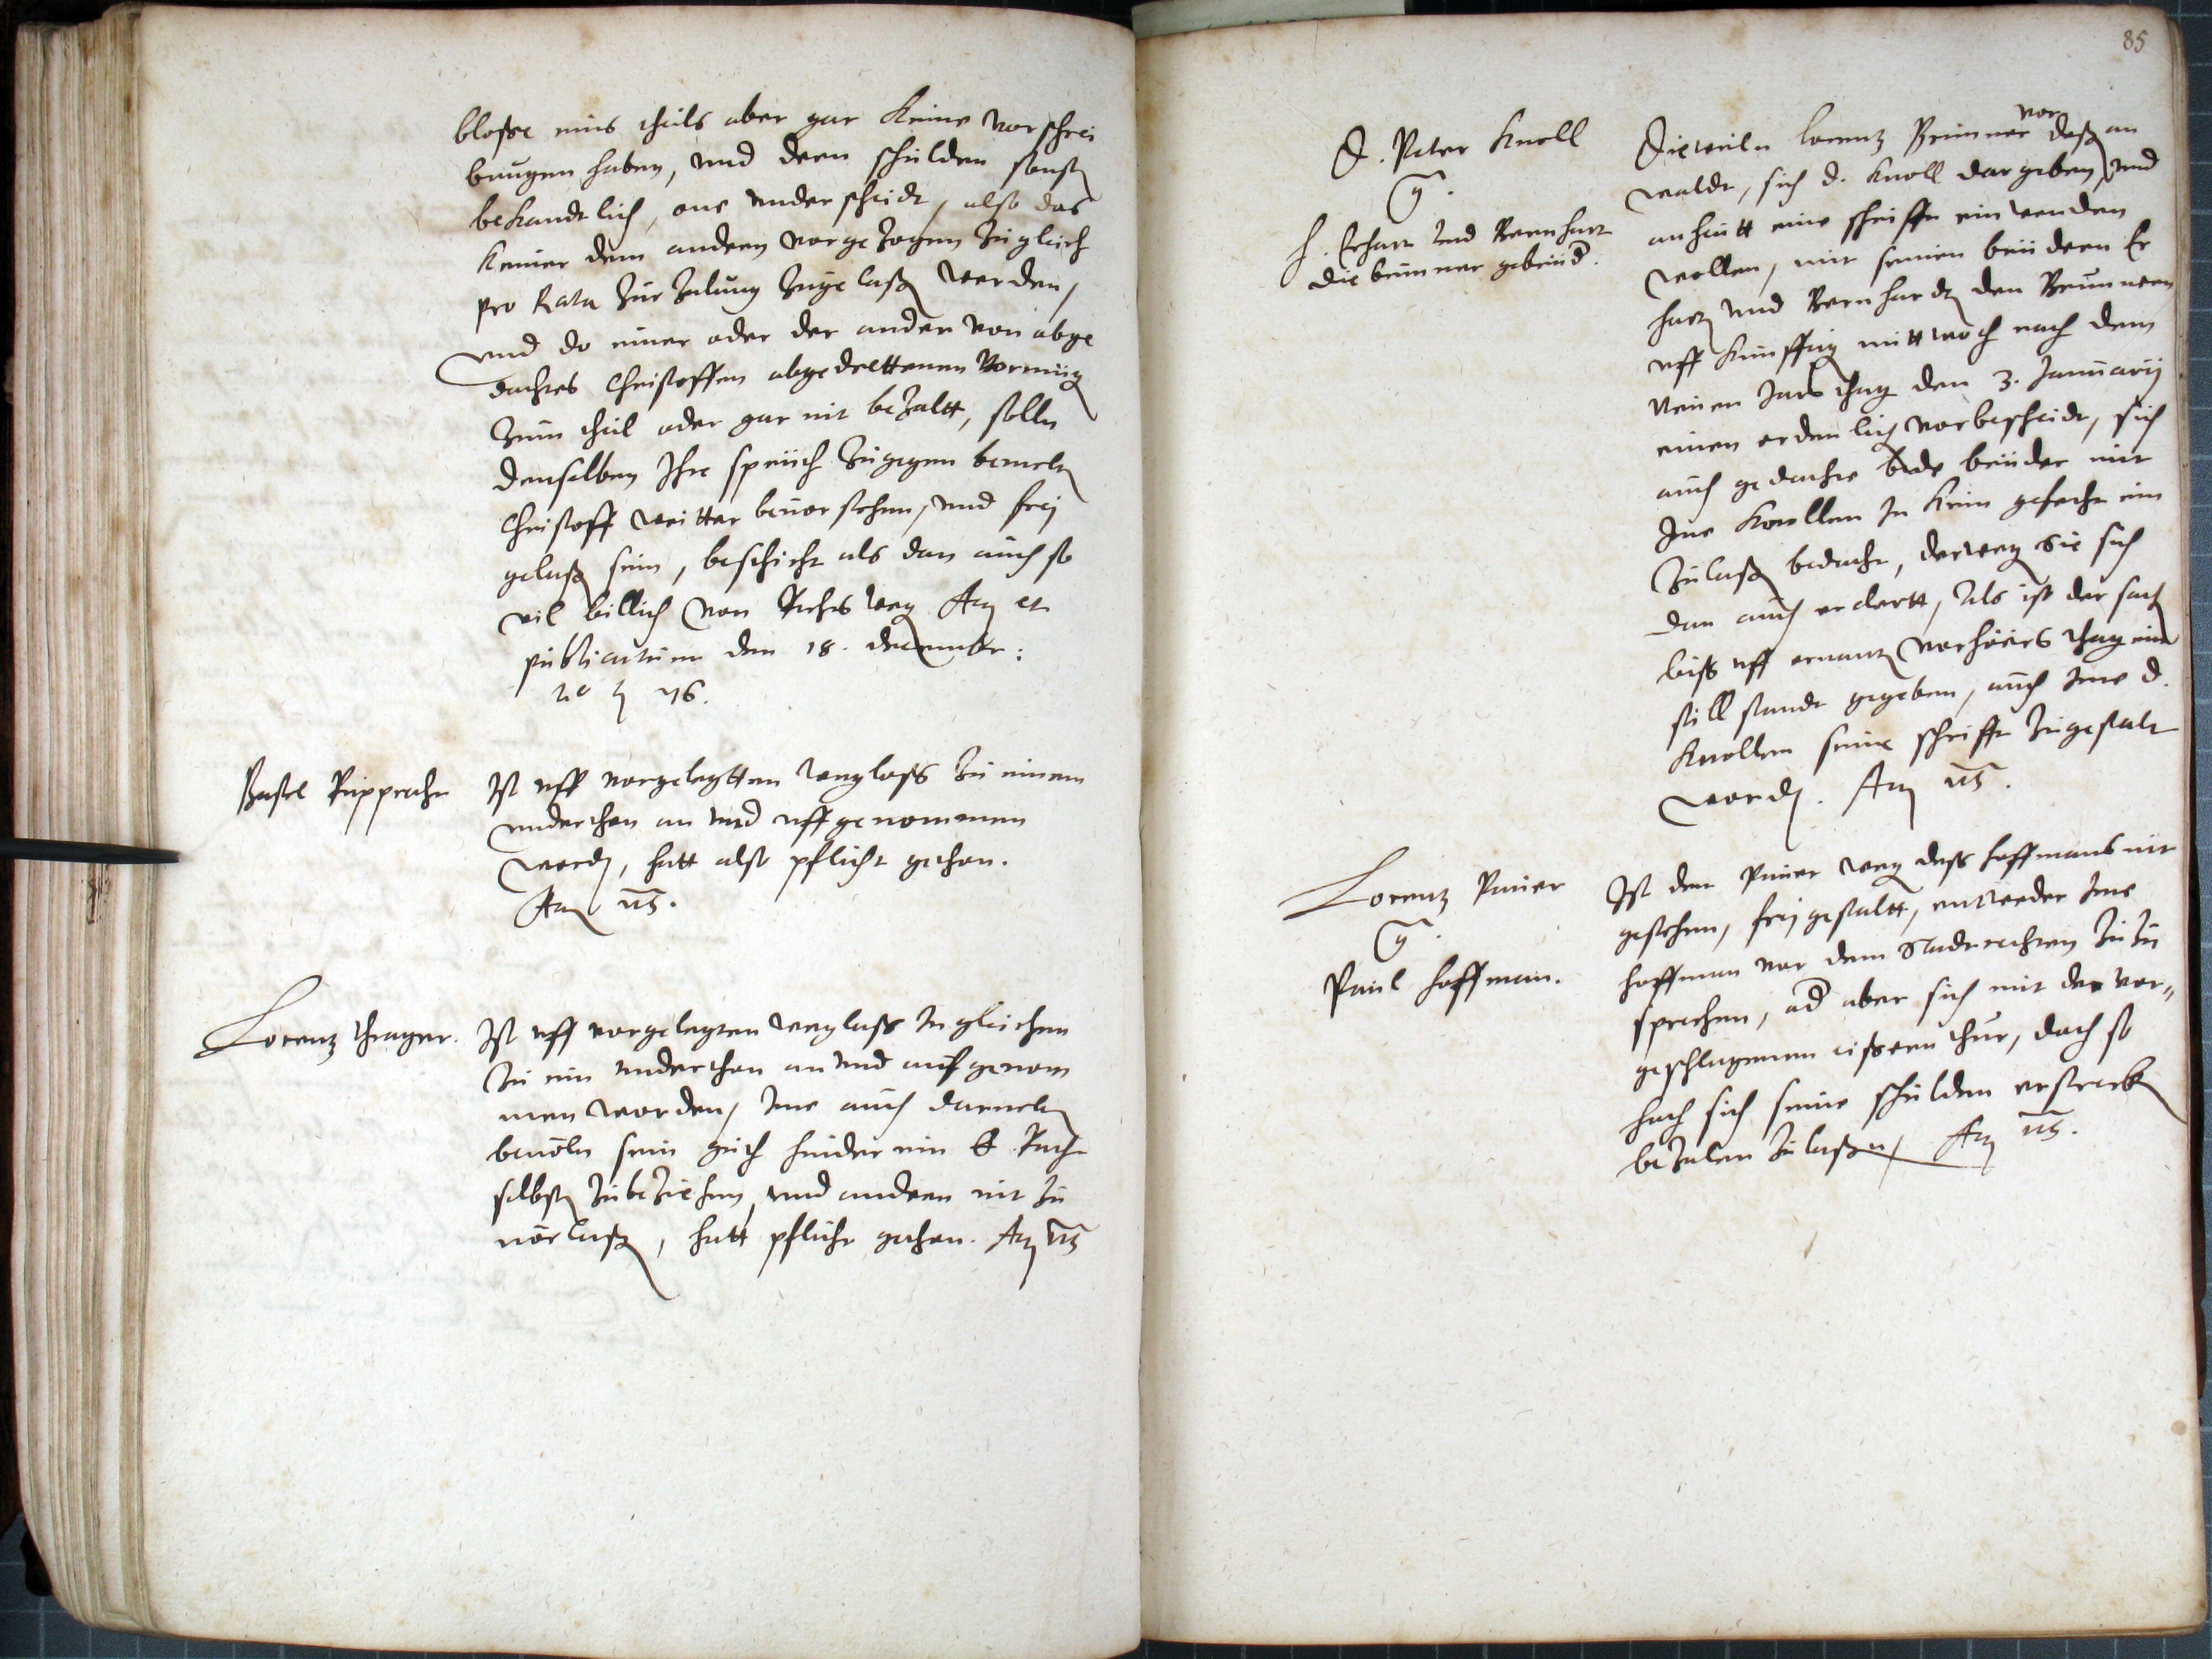 blosse eins theils aber gar keine vorschrei
bungen haben, und deren schulden sonst
bekandtlich, one underscheidt, also das
keiner dem andern vorgezogen zugleich
pro Rata zur zalung zugelassen werden,
und do einer oder der ander von abge
dachtes Christoffen abgedrettenen Vermüg
zum theil oder gar nit bezaltt, solln
denselben Ihre sprüch zugegen bemelten
Christoff weitter bevorstehen, und frej
gelassen sein, beschicht als dan auch so
vil billich von Rechts weg Act et
publicatum den 18. december:
76.
Bastel Rupprecht
Ist uff vorgelegtten weglass zu einem
underthan an und uffgenommen
worden, hatt also pflicht gethon.
Act uts.
Lorentz Thrager.
Ist uff vorgelegten weglass In gleichen
zu ein underthan an und aufgenom
men worden, Ime auch darneben
bevoln sein guth hinder ein E Rath
selbsten zubeziehen, und andern nit zu
verlassen, hatt pflicht gethon. Act uts
85
D. Peter Knoll
c/
H. Erhart und Bernhart
die brunner gebrüd.
Dieweiln lorentz Brunner vor dessen an
waldt, sich d. Knoll dargeben, und
anheutt eine schrifft einwenden
wollen, mit seinen brüdern Er
hartt und Bernhardtt den Brunnern
uff künfftig mittwoch nach dem
Neuen Jars thag den 3. Januarij
einen ordenlichen vorbescheidt, sich
auch gedachte bede brüder mit
Ime Knollen In kein gefecht ein
zulassen bedacht, derwegen Sie sich
dan auch erclertt, Als ist der sachen
biss uff ernanten verhörs thag ein
stillstandt gegeben, auch Ime d.
Knollen seine schrifft zugestalt
worden. Act uts.
Lorentz Pauer
c/
Paul Hoffman.
Ist dem Pauer weg dess Hoffmans nit
gestehen, frej gestaltt, entweder Ime
Hoffman vor dem Stadtrechten zu zu
sprechen, od aber sich mit der vor„
geschlagenen eissern thür, doch so
hoch sich seine schulden erstrecken
bezalen zulassen, Act uts.